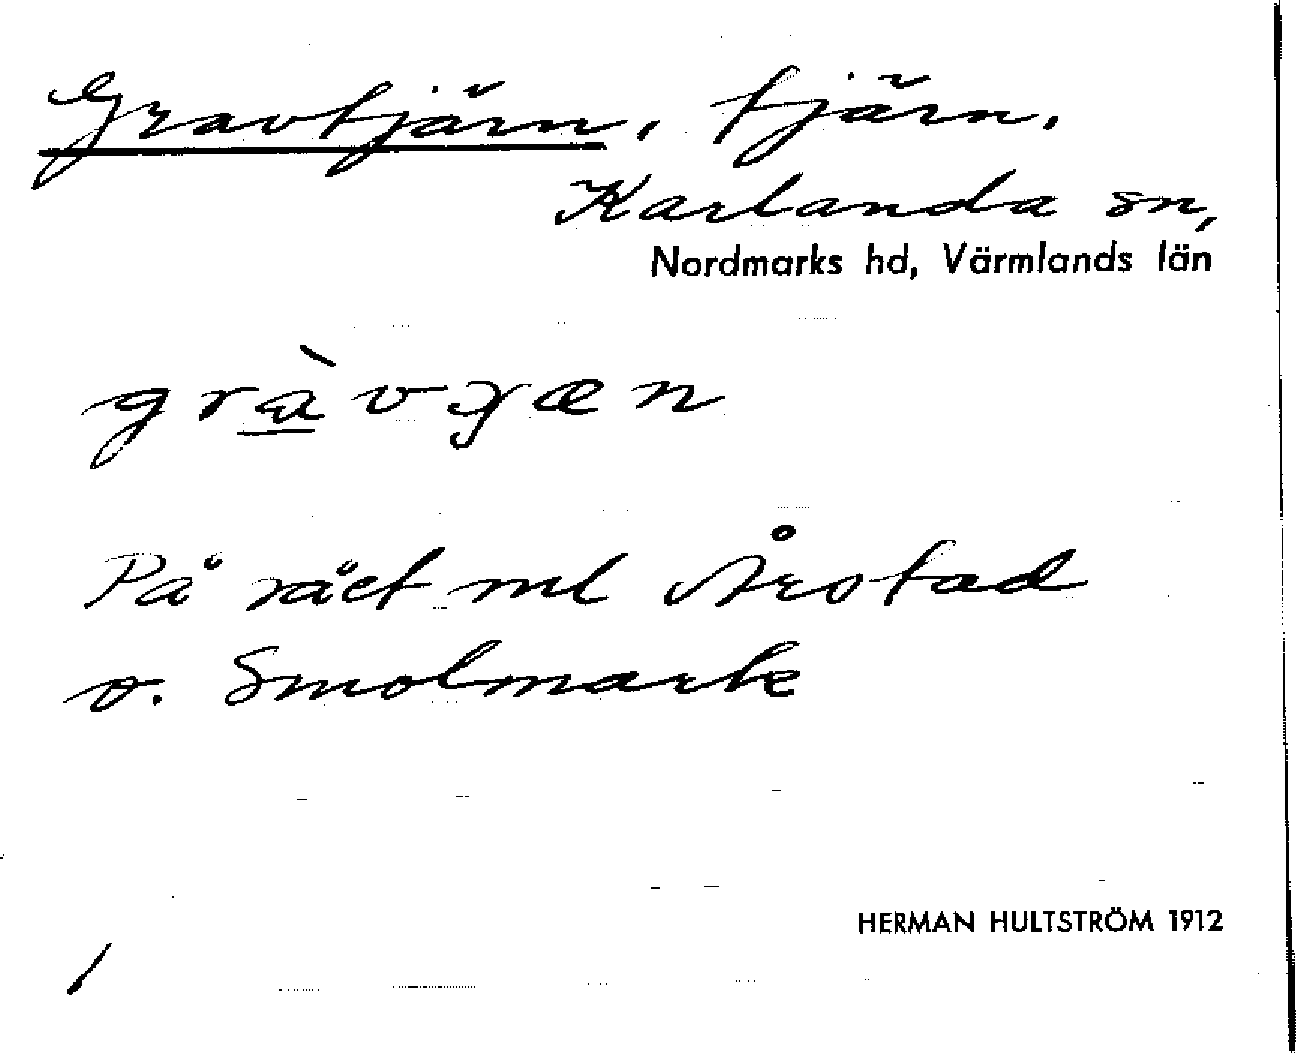 Gravtjärn, tjärn.
Karlanda sn,
Nordmarks hd, Värmlands län
På rået ml Årstad
o. Smolmark
HERMAN HULTSTRÖM 1912